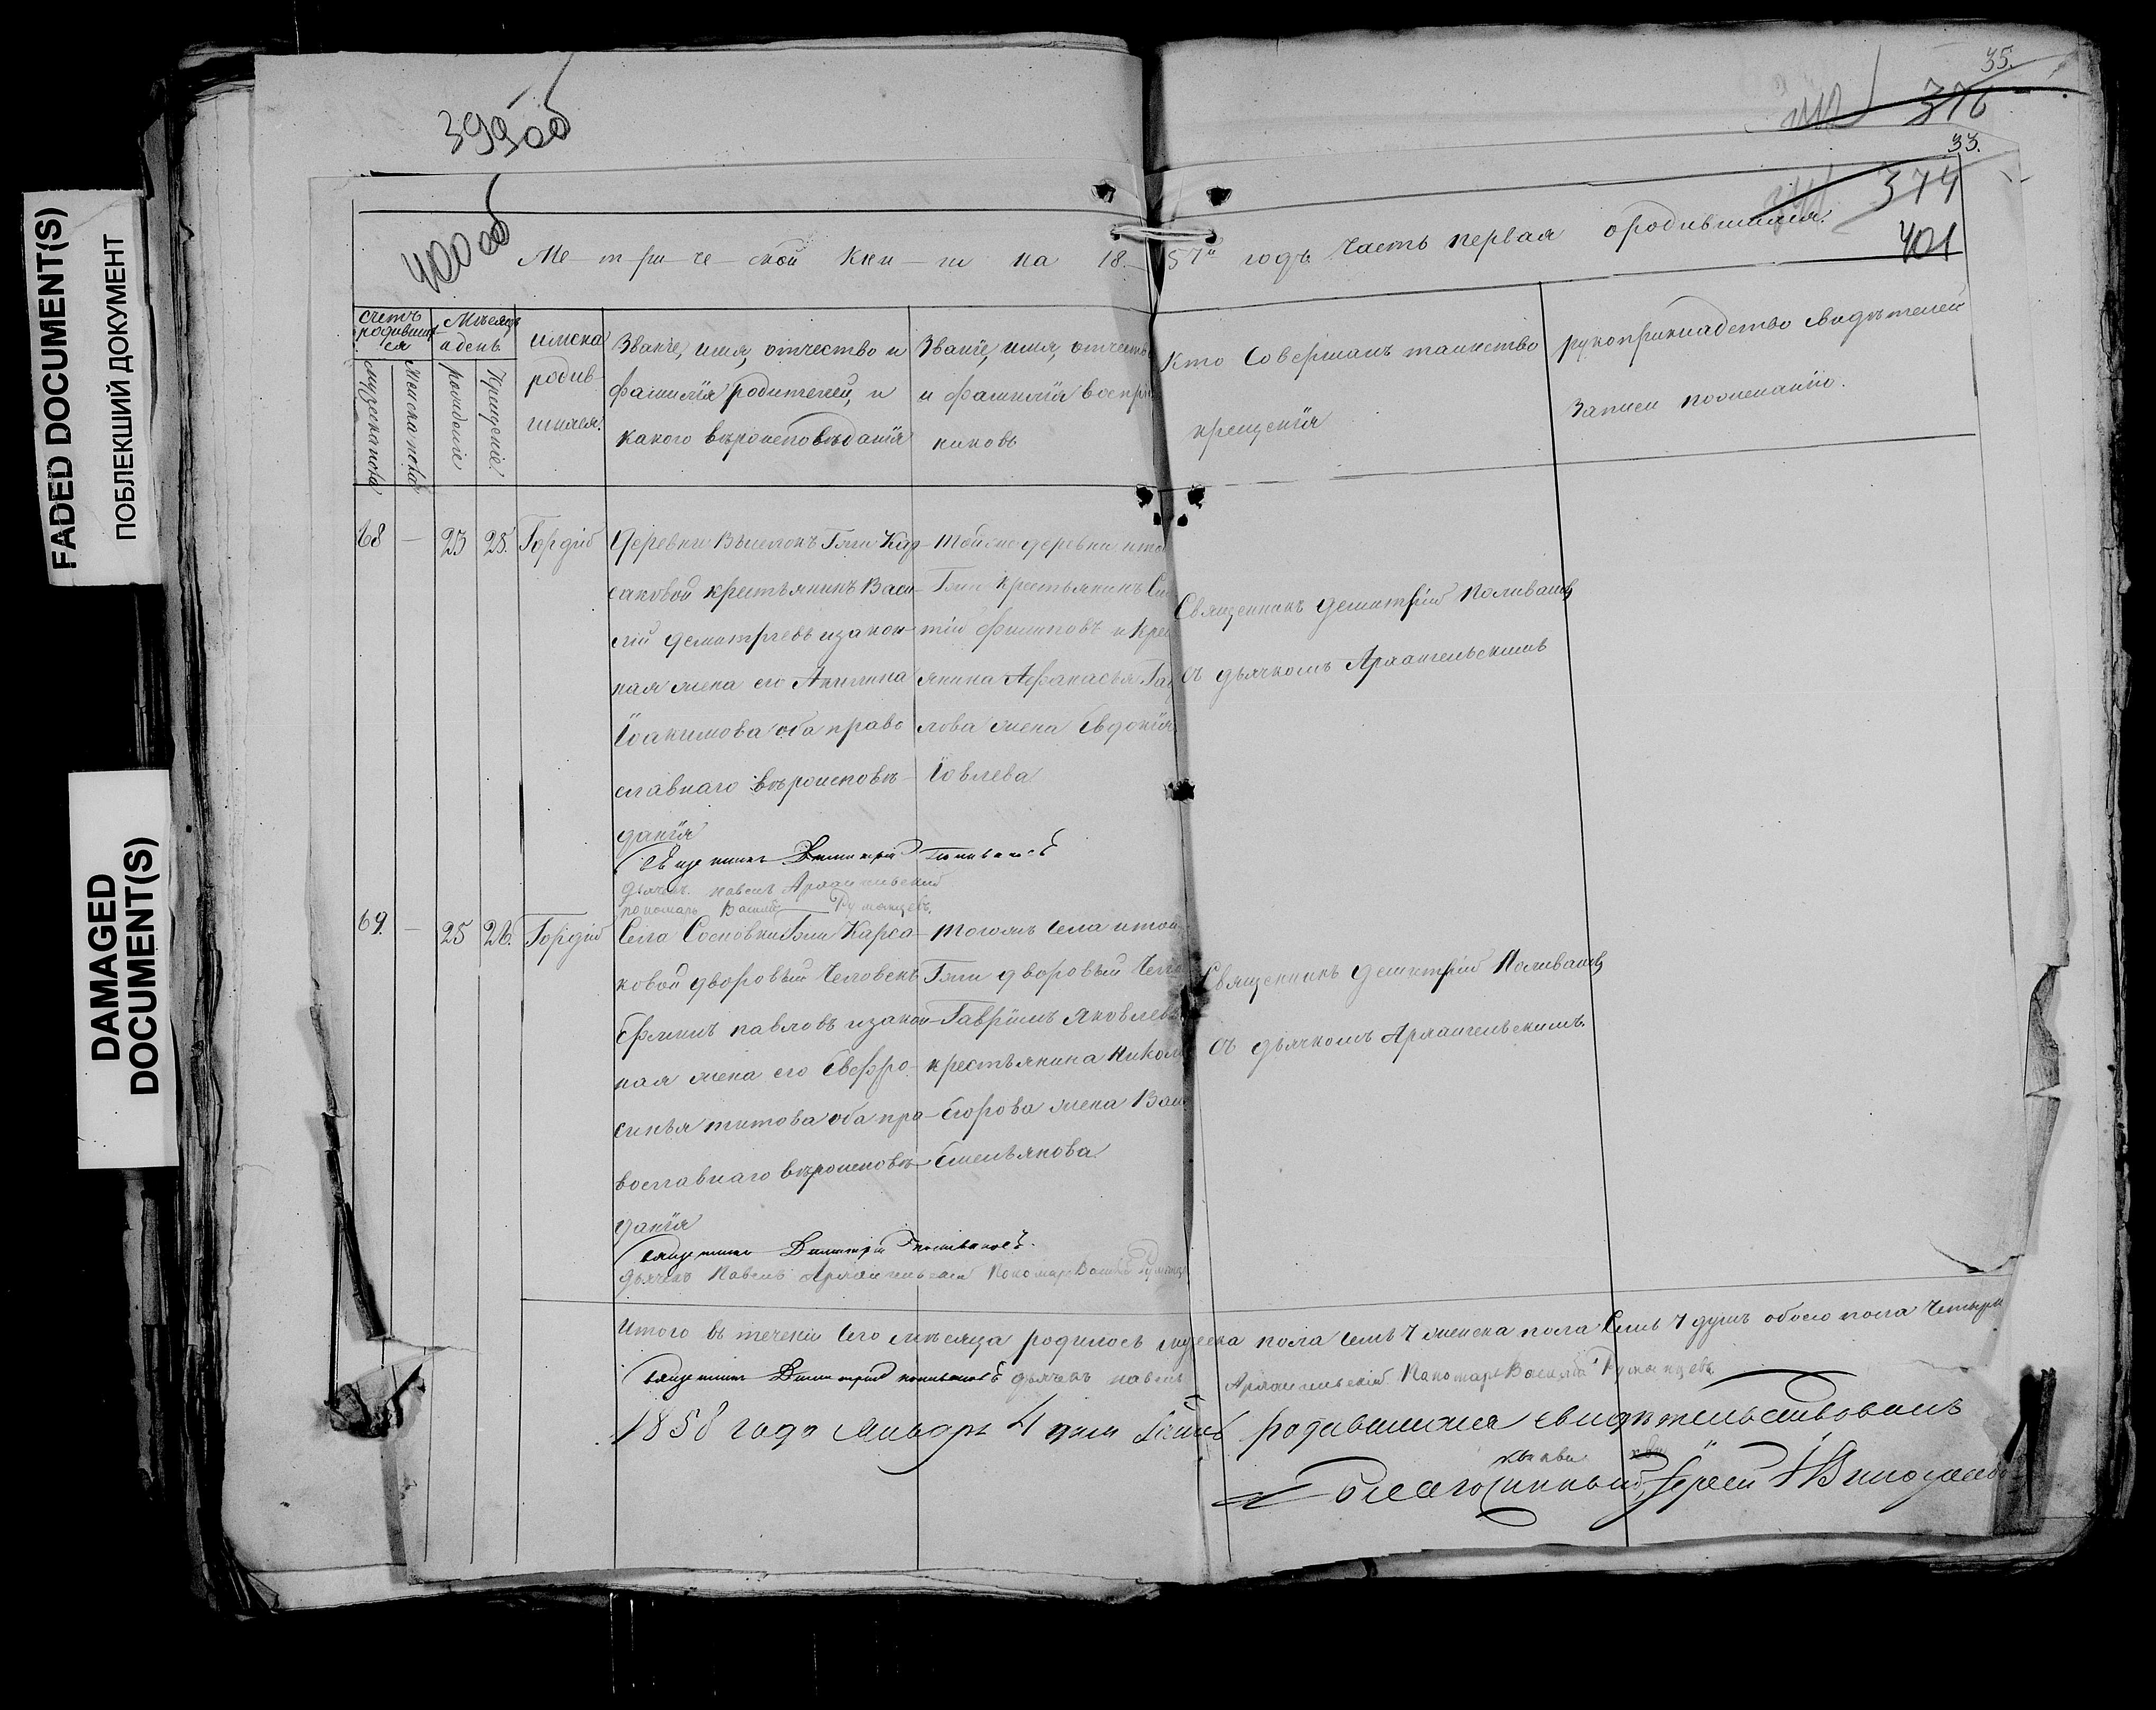 FADED DOCUMENT(S)
ПОБЛЕКШИЙ ДОКУМЕНТ
DAMAGED
DOCUMENT(S)
399об
400об
35.
376
33.
374
401
Ме-три-че-ской Кни-ги на 18-57й годъ Часть первая ородившихся.
счетъ родившихся
мужеска пола
женска пола
Мѣсяцъ и день
рожденіе
Крещеніе
имена родившихся.
Званіе, имя, отчество и фамилія родителей, и какого вѣроисповѣданія
Званіе, имя, отчество и фамилія воспріемниковъ
Кто Совершалъ таинство крещенія
рукоприкладство свидѣтелей Записи пожеланію.
68 — 23 28. Гордій
Деревни Выселокъ Гжи Кар-
саковой крестьянинъ Васи-
лій Деметріевъ изакон-
ная жена его Акилина
Іоакимова оба право
славнаго вѣроисповѣ-
данія
Тойже деревни итой
Гжи крестьянинъ
тій Филиповъ и Крес
янина Афанасья Гав
лова жена Евдокія
Іовлева
Священникъ Деметрій Поливановъ
съ дьячкомъ Архангельскимъ
Священникъ Димитрій Поливановъ
дьячекъ Павелъ Архангельскій
пономарь Василій Румянцевъ.
69. — 25 26. Гордій
Села Сосновки Гжи Карса-
ковой дворовый Человекъ
Ефимъ павловъ изакон-
ная жена его Евфро-
синья титова оба пра-
вославнаго вѣроисповѣ-
данія
Тогожъ села итой
Гжи дворовый Чело
Гавріилъ Яковлевъ
крестьянина Никол
Егорова жена Вас
Емельянова
Священникъ Деметрій Поливановъ
съ дьячкомъ Архангельскимъ.
Священникъ Димитрій Поливановъ.
Дьячекъ Павелъ Архангельскій Пономарь Василій Румянцевъ
Итого въ теченіи Сего мѣсяца родилось мужеска пола семь 7 женска пола Семь 7 душъ обоего пола Четырн
Священникъ Димитрій Поливановъ дьячекъ павелъ Архангельскій. Пономарь Василій Румянцевъ.
1858 года Январь 4 дня родившихся свидѣтельствовалъ
Благочинный, Іерей